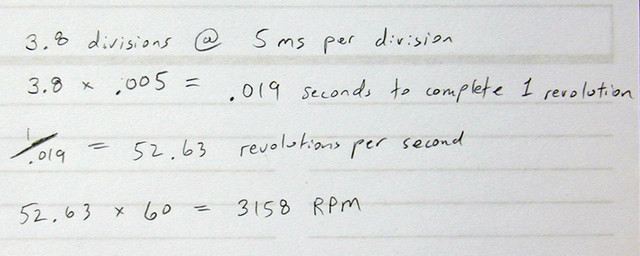 3.8 divisions @ 5 ms per division
3.8 x .005 = .019 seconds to complete 1 revolution
1/.019 = 52.63 revolutions per second
52.63 x 60 = 3158 RPM